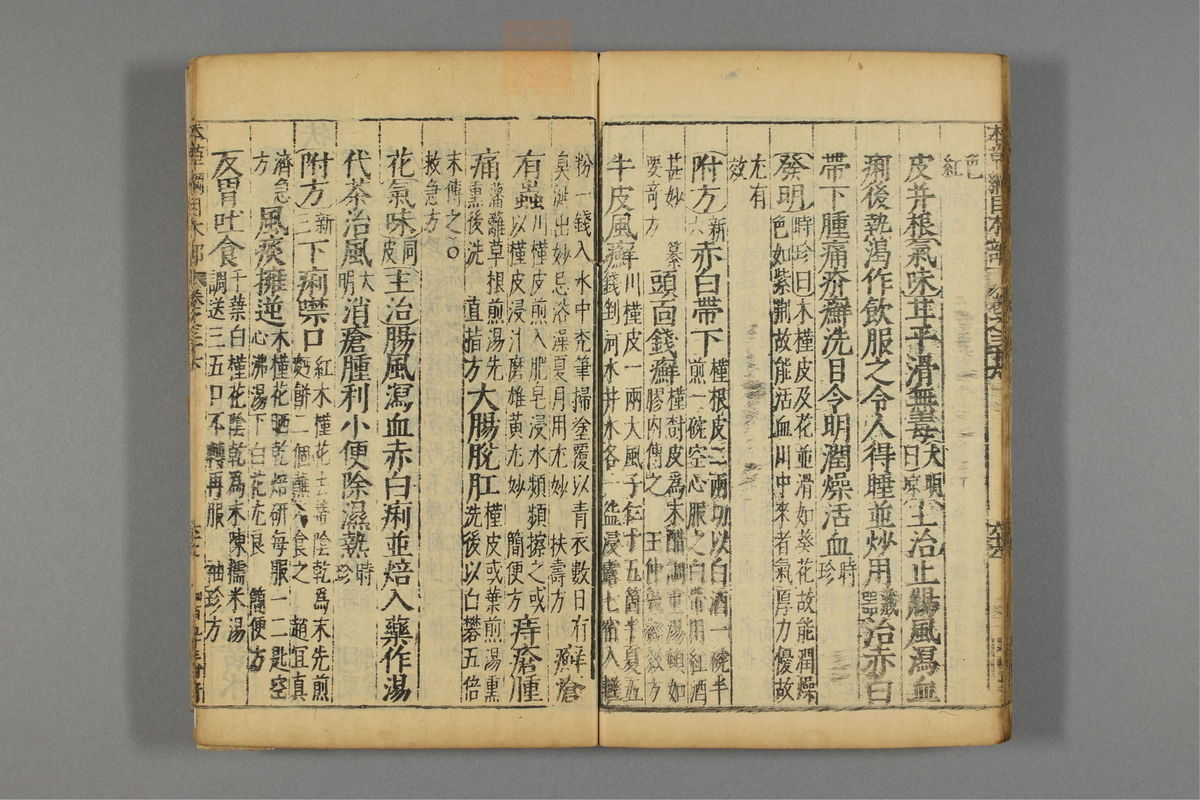 色
紅
皮并根氣味甘平滑無毒大明曰涼主治止腸風瀉血
痢後熱渴作飲服之令人得睡並炒用藏器治赤白
帶下腫痛疥癬洗目令明潤燥活血時珍
發明時珍曰木槿皮及花並滑如葵花故能潤燥
色如紫荆故能活血川中來者氣厚力優故
尤有
效
附方新六赤白帶下槿根皮二兩切以白酒一碗半
煎一碗空心服之白帶用紅酒
甚妙 纂
要奇方 頭面錢癬槿樹皮爲末醋調重湯頓如
膠內傅之 王仲勉經效方
牛皮風癬川槿皮一兩大風子仁十五箇半夏五
錢剉河水井水各一盌浸露七宿入輕
粉一錢入水中禿筆掃塗覆以青衣數日有
臭涎出妙忌浴澡夏月用尤妙 扶壽方 癬瘡
有蟲川槿皮煎入肥皂浸水頻頻擦之或
以槿皮浸汁磨雄黃尤妙 簡便方 痔瘡腫
痛藩籬草根煎湯先
熏後洗 直指方 大腸脫肛槿皮或葉煎湯熏
洗後以白礬五倍
末傅之
救急方
花氣味同皮主治腸風瀉血赤白痢並焙入藥作湯
代茶治風大明消瘡腫利小便除濕熱時珍
附方新三下痢噤口紅木槿花去蒂陰乾爲末先煎
麪餅二個蘸末食之 趙宜真
濟急
方 風痰擁逆木槿花曬乾焙研每服一二匙空
心沸湯下白花尤良 簡便方
反胃吐食千葉白槿花陰乾爲末陳糯米湯
調送三五口不轉再服 袖珍方